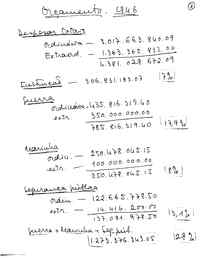 Orçamento. 1946
Despesas Totais
Ordinária — 3.017.663.840.09
Extraord. — 1.363.365.832.00
4.381.029.672.09
Educação — 306.831.183.07 7%
Guerra
ordinária 435.816.319.40
extr. 350.000.000.00
785.816.319.40 17,9%
Marinha
ordin. — 250.478.045.15
extr. — 100.000.000.00
350.478.045.15 8%
Segurança pública
orden — 122.665.778.50
extr. — 14.416.200.00
137.081.978.50 3,1%
guerra + marinha + seg. púb.
1.273.376.343.05 29%